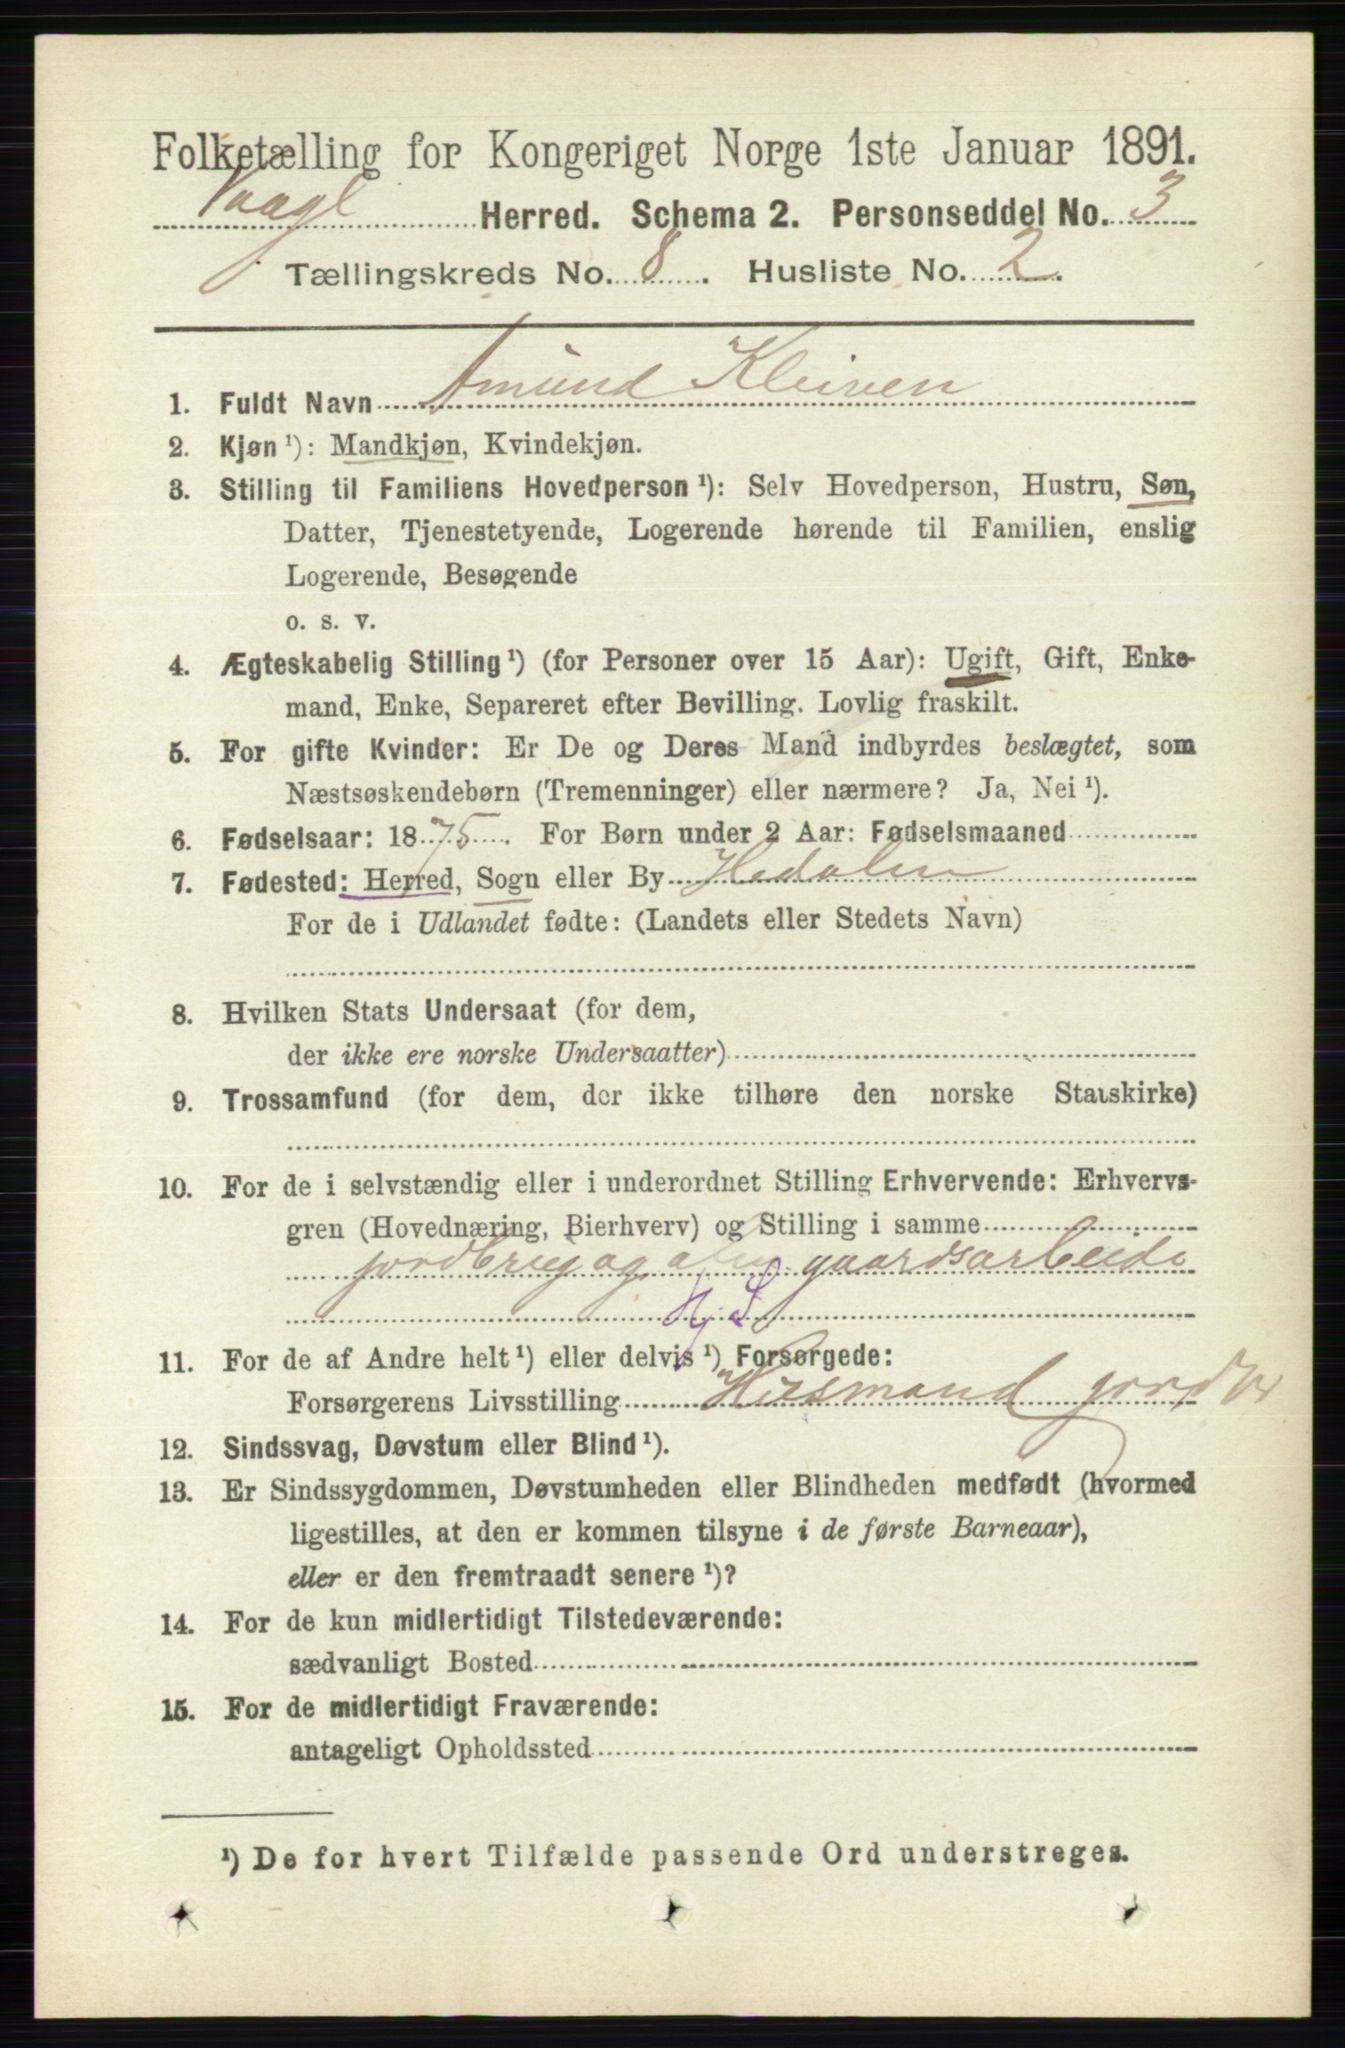 Folketælling for Kongeriget Norge 1ste Januar 1891.
Herred. Schema 2. Personseddel No. 3
Tællingskreds No. 8. Husliste No. 2.
1. Fuldt Navn Amund Kleiven
2. Kjøn ¹): Mandkjøn, Kvindekjøn.
3. Stilling til Familiens Hovedperson ¹): Selv Hovedperson, Hustru, Søn,
Datter, Tjenestetyende, Logerende hørende til Familien, enslig
Logerende, Besøgende
o. s. v.
4. Ægteskabelig Stilling ¹) (for Personer over 15 Aar): Ugift, Gift, Enke-
mand, Enke, Separeret efter Bevilling. Lovlig fraskilt.
5. For gifte Kvinder: Er De og Deres Mand indbyrdes beslægtet, som
Næstsøskendebørn (Tremenninger) eller nærmere? Ja, Nei ¹).
6. Fødselsaar: 1875. For Børn under 2 Aar: Fødselsmaaned
7. Fødested: Herred, Sogn eller By Hedalen
For de i Udlandet fødte: (Landets eller Stedets Navn)
8. Hvilken Stats Undersaat (for dem,
der ikke ere norske Undersaatter)
9. Trossamfund (for dem, der ikke tilhøre den norske Statskirke)
10. For de i selvstændig eller i underordnet Stilling Erhvervende: Erhvervs-
gren (Hovednæring, Bierhverv) og Stilling i samme
gaardsarbeide
11. For de af Andre helt ¹) eller delvis ¹) Forsørgede:
Forsørgerens Livsstilling Husmand
12. Sindssvag, Døvstum eller Blind ¹).
13. Er Sindssygdommen, Døvstumheden eller Blindheden medfødt (hvormed
ligestilles, at den er kommen tilsyne i de første Barneaar),
eller er den fremtraadt senere ¹)?
14. For de kun midlertidigt Tilstedeværende:
sædvanligt Bosted
15. For de midlertidigt Fraværende:
antageligt Opholdssted
¹) De for hvert Tilfælde passende Ord understreges.